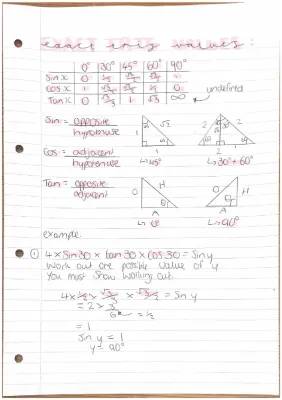 exact trig values:
0° 30° 45° 60° 90°
Sin x 0 1/2 √2/2 √3/2 1
Cos x 1 √3/2 √2/2 1/2 0
Tan x 0 √3/3 1 √3 ∞ undefined
Sin = opposite
hypotenuse
Cos = adjacent
hypotenuse
Tan = opposite
adjacent
↳ 45° ↳ 30° + 60°
O H A
O H A
↳ 90°
example.
① 4 × Sin 30 × tan 30 × Cos 30 = Sin y
Work out one possible value of y
You must show working out.
4 × 1/2 × √3/3 × √3/2 = Sin y
= 1
Sin y = 1
y = 90°